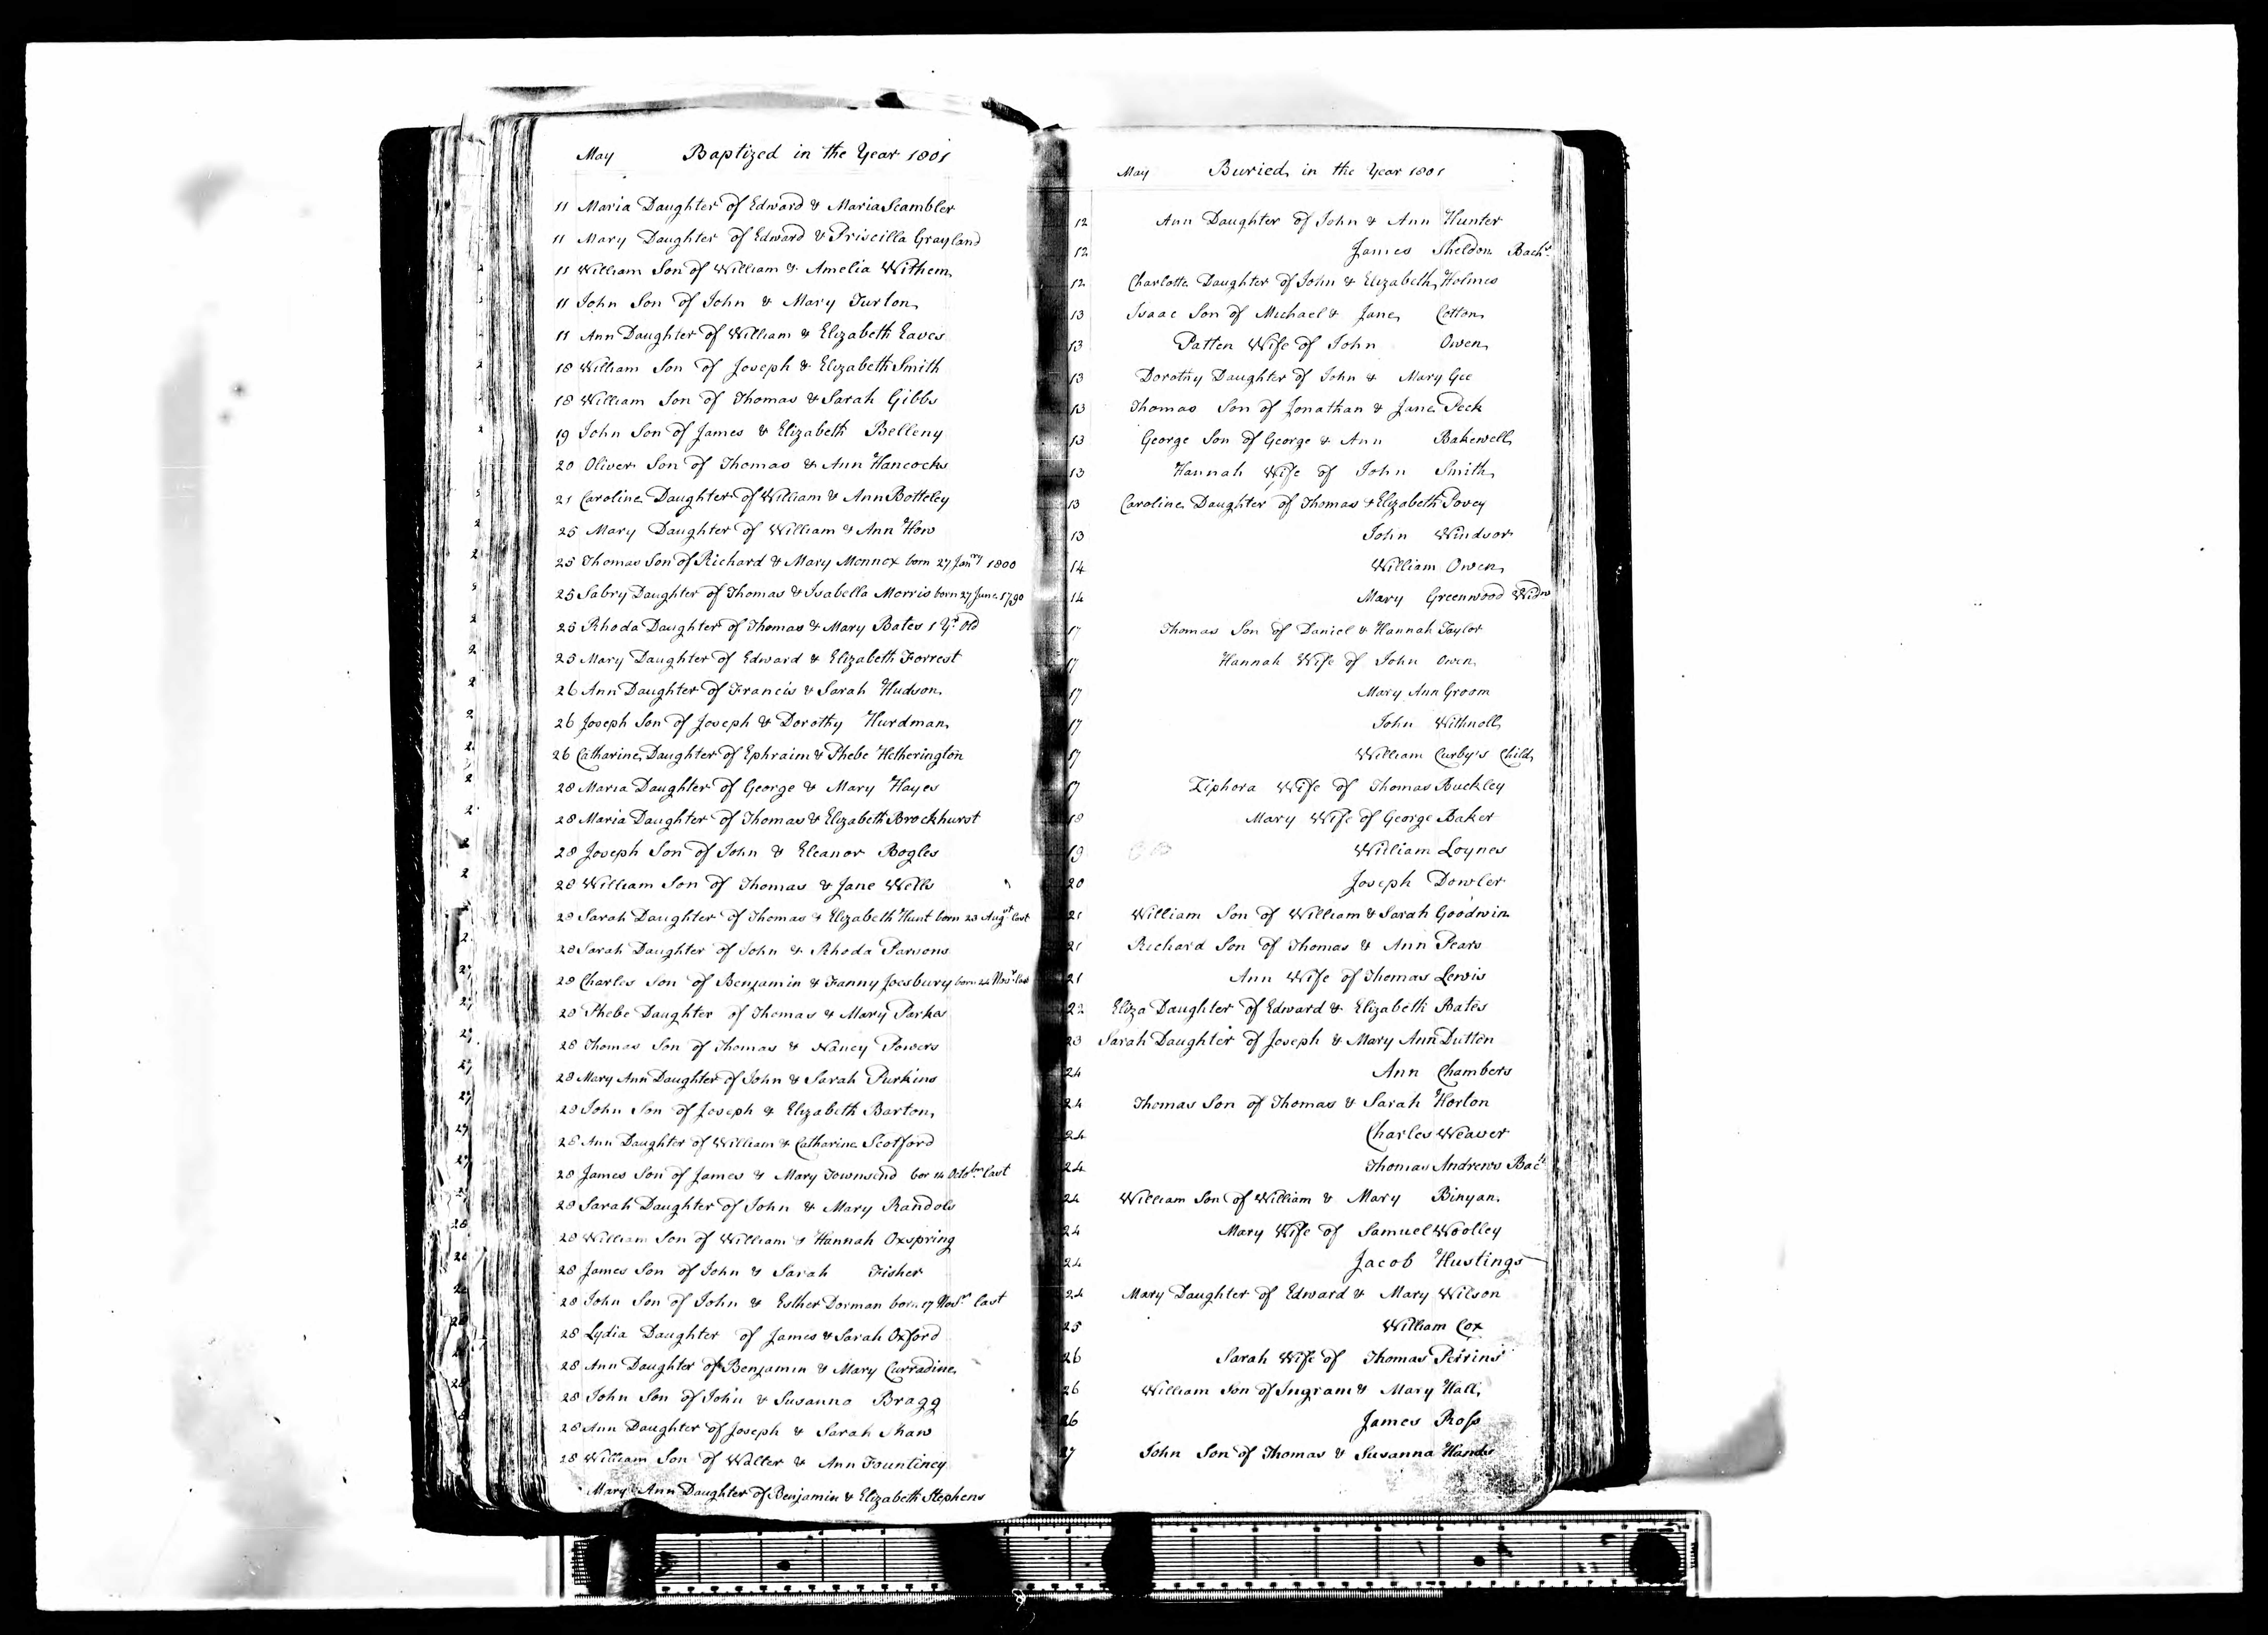 May Baptized in the Year 1801
11 Maria Daughter of Edward & Maria Scambler
11 Mary Daughter of Edward & Priscilla Grayland
11 William Son of William & Amelia Withem
11 John Son of John & Mary Turton
11 Ann Daughter of William & Elizabeth Eaves
18 William Son of Joseph & Elizabeth Smith
18 William Son of Thomas & Sarah Gibbs
19 John Son of James & Elizabeth Belleny
20 Oliver Son of Thomas & Ann Hancocks
21 Caroline Daughter of William & Ann Botteley
25 Mary Daughter of William & Ann How
25 Thomas Son of Richard & Mary Mennox born 27 Janry 1800
25 Sabry Daughter of Thomas & Isabella Morris born 27 June 1790
25 Rhoda Daughter of Thomas & Mary Bates 1 Yr Old
25 Mary Daughter of Edward & Elizabeth Forrest
26 Ann Daughter of Francis & Sarah Hudson
26 Joseph Son of Joseph & Dorothy Hurdman
26 Catharine Daughter of Ephraim & Phebe Hetherington
28 Maria Daughter of George & Mary Hayes
28 Maria Daughter of Thomas & Elizabeth Brockhurst
28 Joseph Son of John & Eleanor Bogles
28 William Son of Thomas & Jane Wells
28 Sarah Daughter of Thomas & Elizabeth Hunt born 23 Augst last
28 Sarah Daughter of John & Rhoda Parsons
28 Charles Son of Benjamin & Fanny Joesbury born 24 Novr last
28 Phebe Daughter of Thomas & Mary Parkes
28 Thomas Son of Thomas & Nancy Powers
28 Mary Ann Daughter of John & Sarah Purkins
28 John Son of Joseph & Elizabeth Barton
28 Ann Daughter of William & Catharine Scotford
28 James Son of James & Mary Townsend bor 14 Octobr last
28 Sarah Daughter of John & Mary Randols
28 William Son of William & Hannah Oxspring
28 James Son of John & Sarah Fisher
28 John Son of John & Esther Dorman born 17 Novr last
28 Lydia Daughter of James & Sarah Oxford
28 Ann Daughter of Benjamin & Mary Curradine
28 John Son of John & Susanna Bragg
28 Ann Daughter of Joseph & Sarah Shaw
28 William Son of Walter & Ann Fountiney
Mary Ann Daughter of Benjamin & Elizabeth Stephens
May Buried in the Year 1801
12 Ann Daughter of John & Ann Hunter
12 James Sheldon Bachr
12 Charlotte Daughter of John & Elizabeth Holmes
13 Isaac Son of Michael & Jane Cotton
13 Patten Wife of John Owen
13 Dorothy Daughter of John & Mary Gee
13 Thomas Son of Jonathan & Jane Peck
13 George Son of George & Ann Bakewell
13 Hannah Wife of John Smith
13 Caroline Daughter of Thomas & Elizabeth Povey
13 John Windsor
14 William Owen
14 Mary Greenwood Widw
17 Thomas Son of Daniel & Hannah Taylor
17 Hannah Wife of John Owen
17 Mary Ann Groom
17 John Withnoll
17 William Curby's Child
17 Ziphora Wife of Thomas Buckley
18 Mary Wife of George Baker
19 William Loynes
20 Joseph Dowler
21 William Son of William & Sarah Goodwin
21 Richard Son of Thomas & Ann Pears
21 Ann Wife of Thomas Lewis
22 Eliza Daughter of Edward & Elizabeth Bates
23 Sarah Daughter of Joseph & Mary Ann Dutton
24 Ann Chambers
24 Thomas Son of Thomas & Sarah Horton
24 Charles Weaver
24 Thomas Andrews Bachr
24 William Son of William & Mary Binyan
24 Mary Wife of Samuel Woolley
24 Jacob Hustings
24 Mary Daughter of Edward & Mary Wilson
25 William Cox
26 Sarah Wife of Thomas Perrins
26 William Son of Ingram & Mary Hall
26 James Ross
27 John Son of Thomas & Susanna Hands